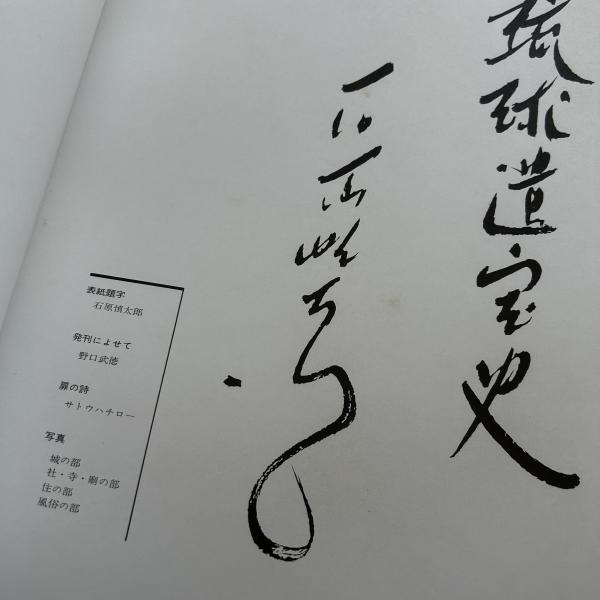 琉球遺宝史
石原慎太郎
表紙題字
石原慎太郎
発刊によせて
野口武徳
扉の詩
サトウハチロー
写真
城の部
社・寺・廟の部
住の部
風俗の部